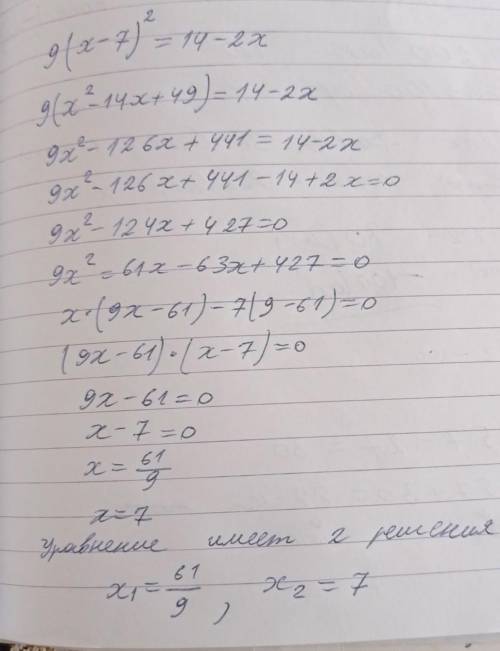 9(x-7)² = 14-2x
9(x²-14x+49) = 14-2x
9x²-126x+441 = 14-2x
9x²-126x+441-14+2x=0
9x²-124x+427=0
9x²=61x-63x+427=0
x·(9x-61)-7(9-61)=0
(9x-61)·(x-7)=0
9x-61=0
x-7=0
x=61/9
x=7
Уравнение имеет 2 решения
x₁=61/9, x₂=7